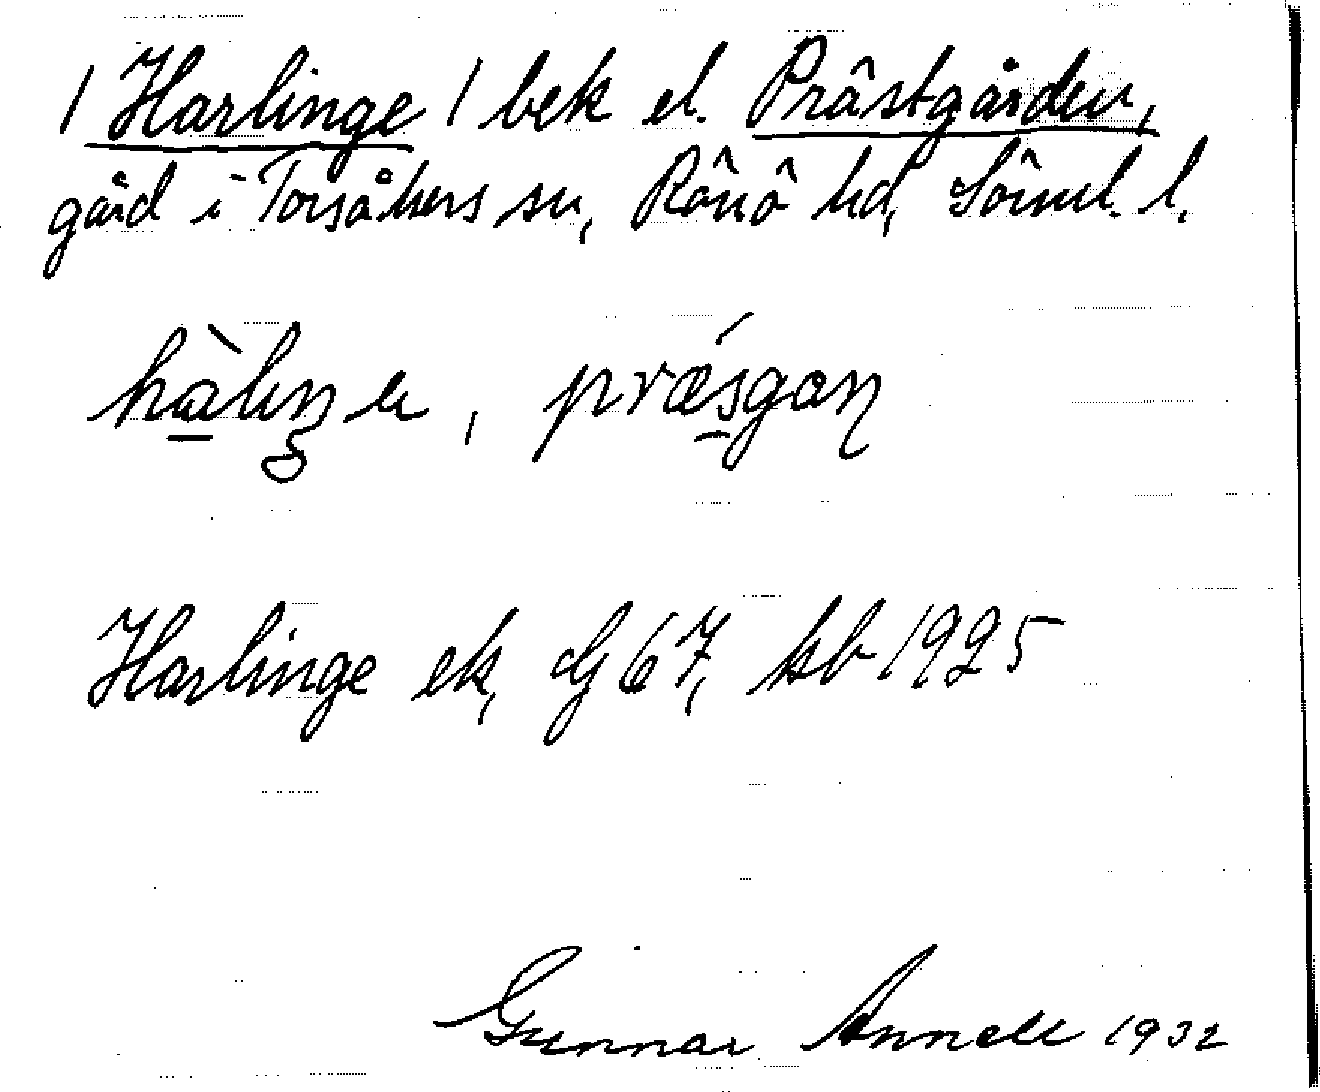 / Harlinge / bek el. Prästgården,
gård i Torsåkers sn, Rönö hd, Sörml. l.
præ̀sgaɳ
Harlinge ek, Gj 67, kb 1925
Gunnar Annell 1932